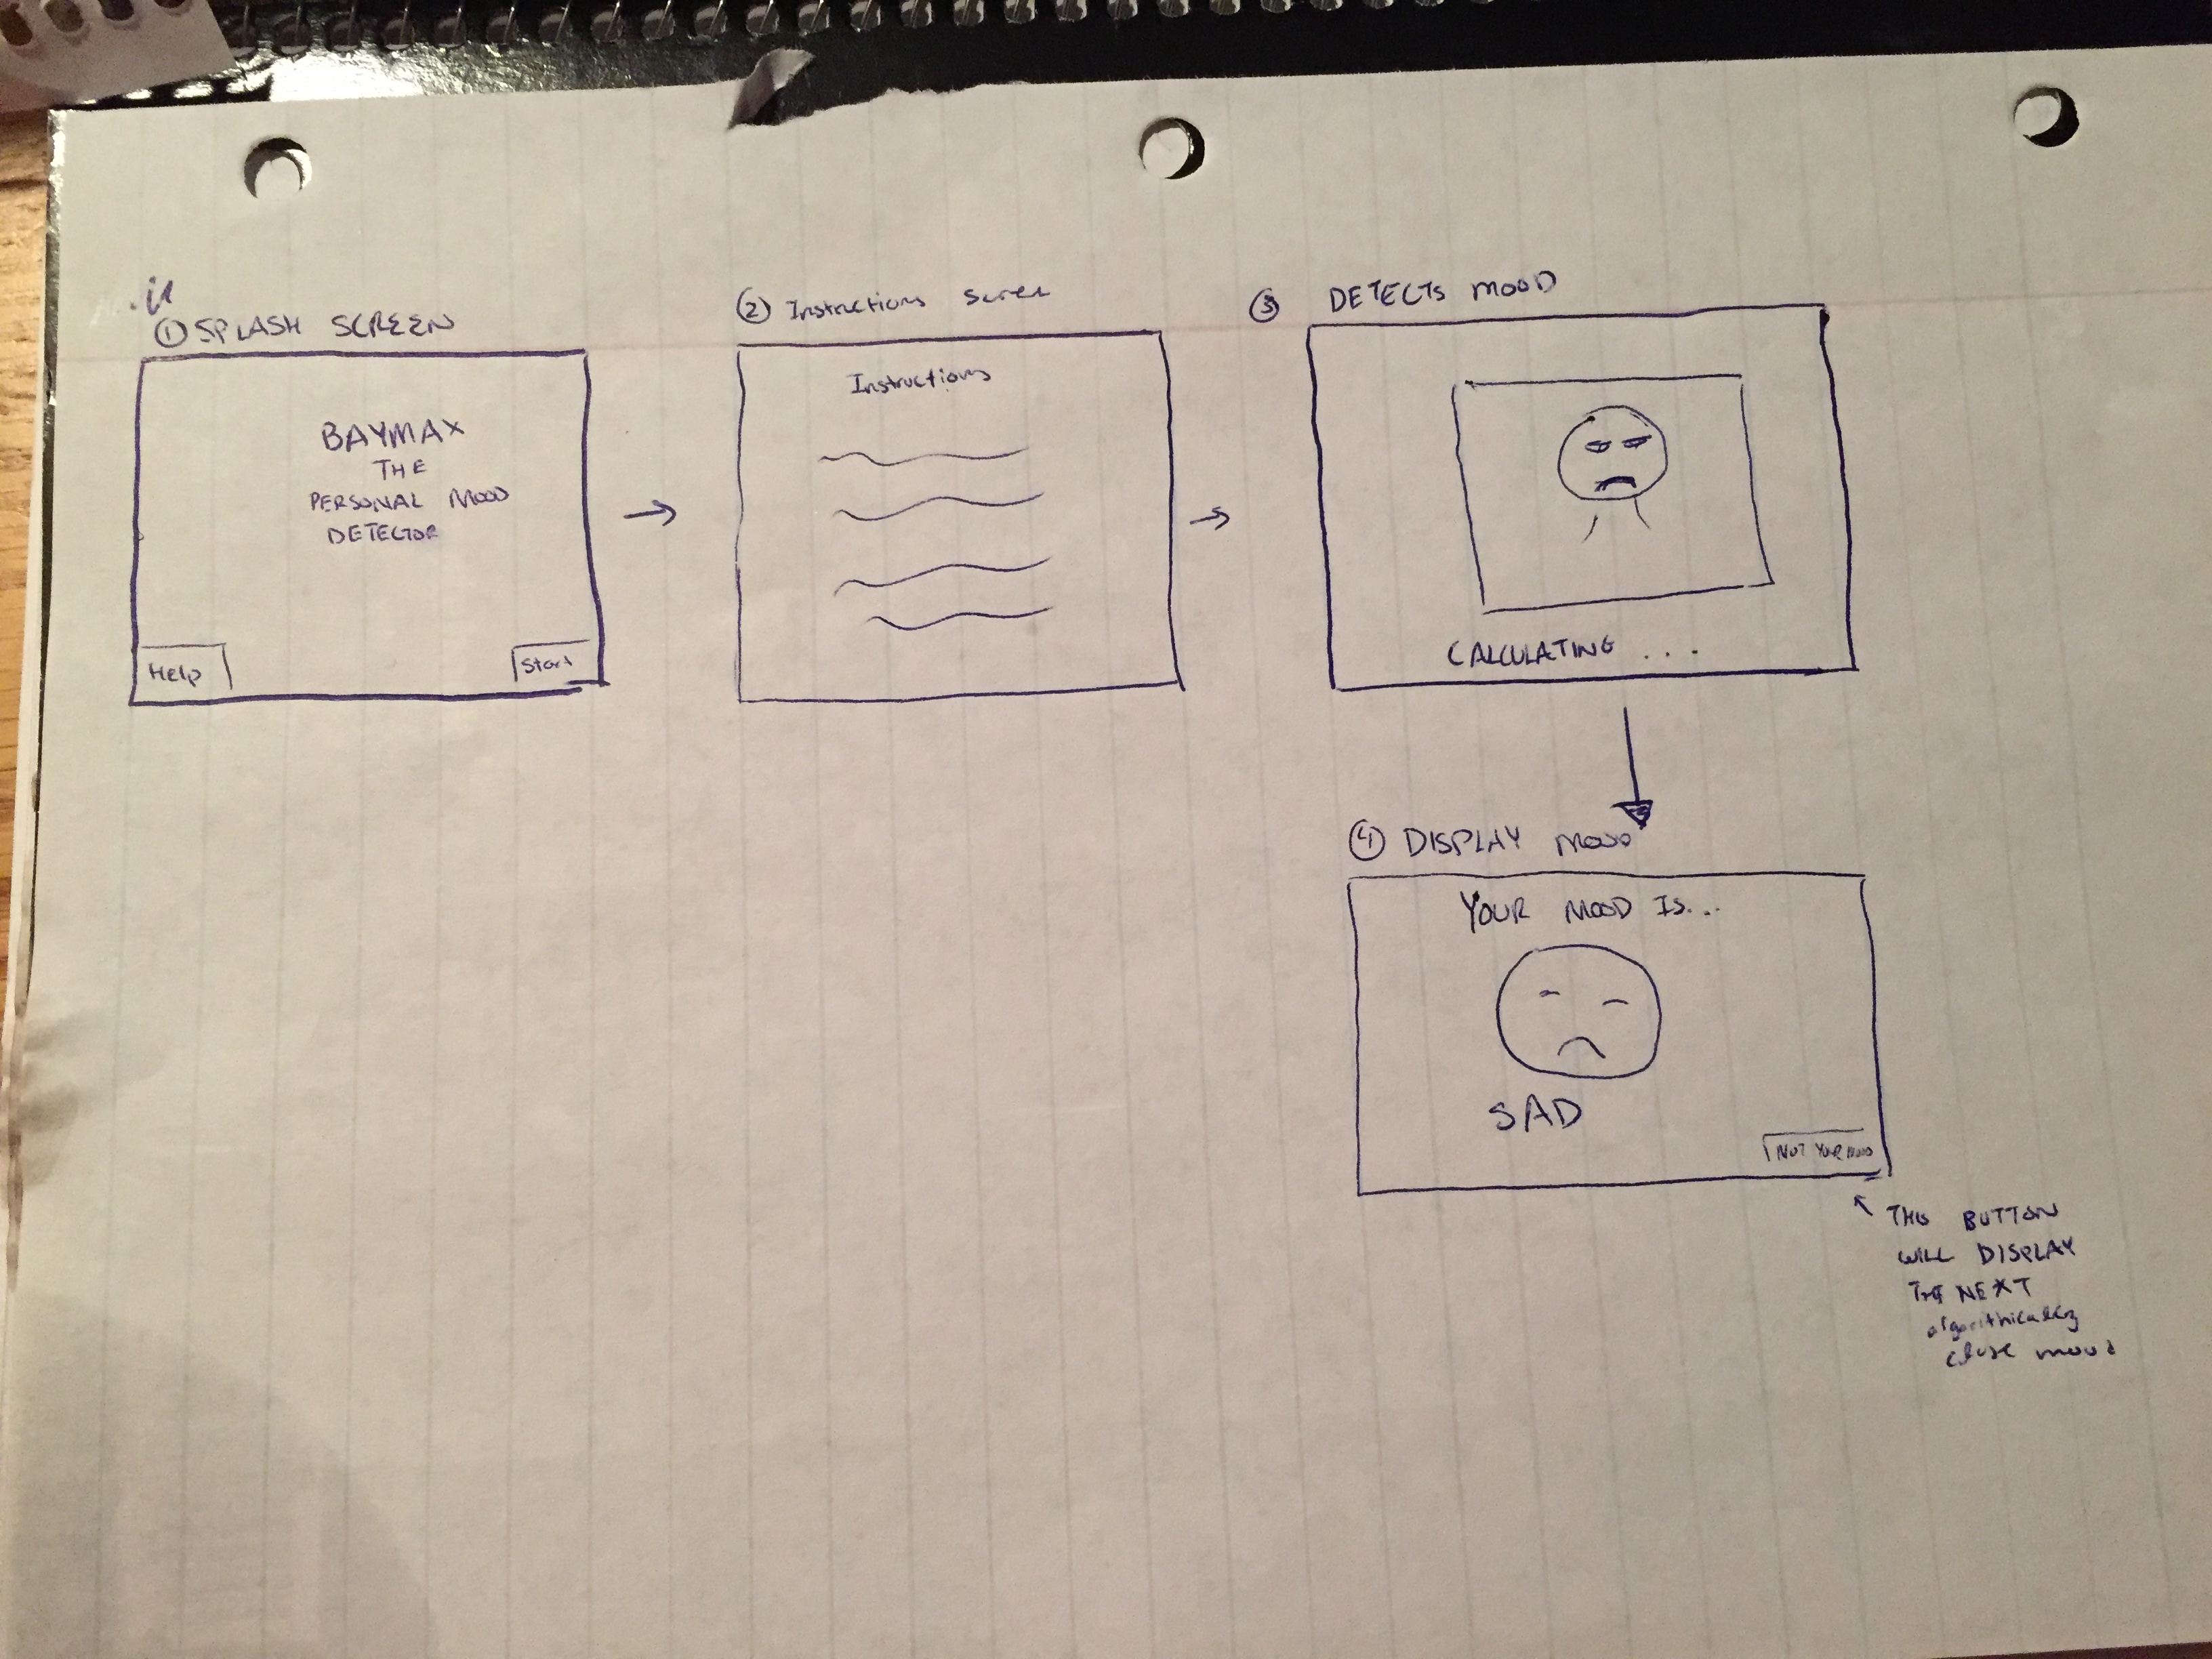 ① SPLASH SCREEN
BAYMAX
THE
PERSONAL MOOD
DETECTOR
Help
Start
② Instructions Screen
Instructions
③ DETECTS MOOD
CALCULATING ...
④ DISPLAY MOOD
YOUR MOOD IS...
SAD
NOT YOUR MOOD
THIS BUTTON
WILL DISPLAY
THE NEXT
algorithmically
close mood